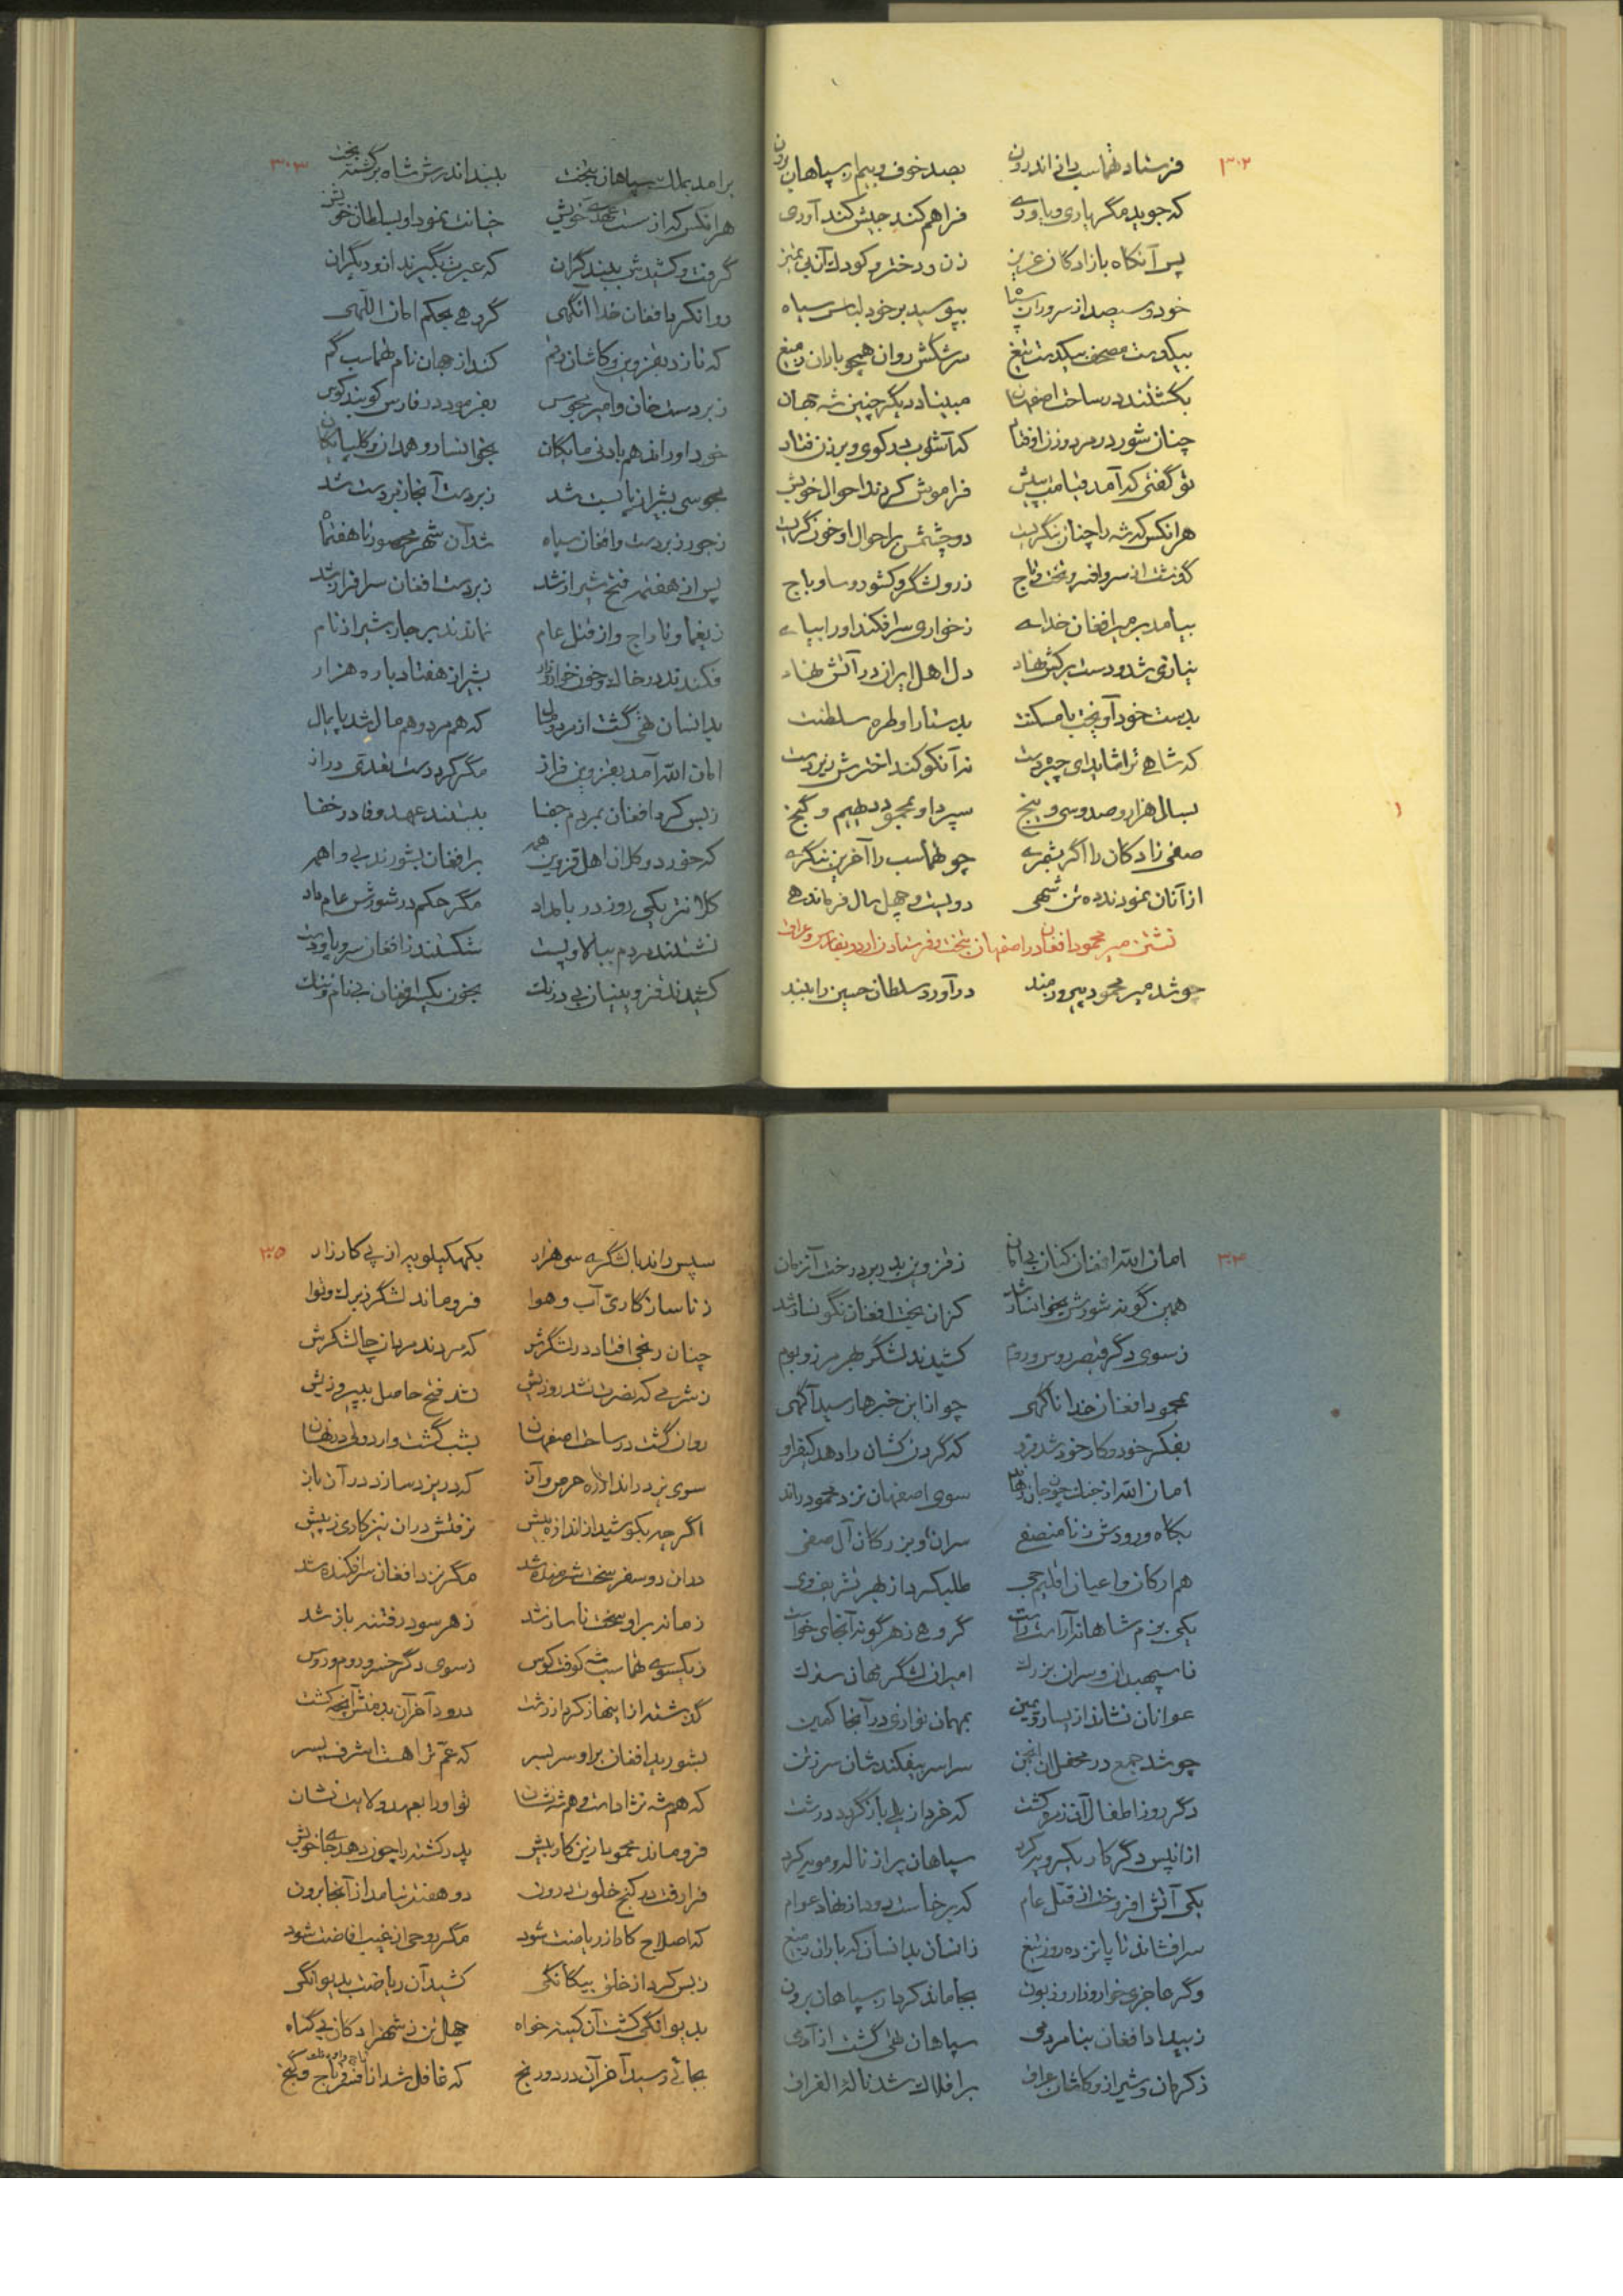 ۳۰۲
فرستاد طهماسب را از اندرون بصد خوف و بیم از سپاهان برون
که جوید مگر یاری و یاوری فراهم کند جیش کندآوری
پس آنگاه با زادگان عزیز زن و دختر و کودک بی تمیز
خود و سیصد از سروران سپاه بپوسید بر خود لباس سیاه
بیکدست مصحف بیکدست تیغ سرشکش روان همچو باران ز میغ
بگشتند در ساحت اصفهان مبیناد دیگر چنین شه جهان
چنان شور در مرد و زن اوفتاد که آشوب در کوی و برزن فتاد
تو گفتی که آمد قیامت به پیش فراموش کردند احوال خویش
هر انکس که شه را چنان بنگریست دو چشمش بر احوال او خون گریست
گذشت از سر و افسر و تخت و تاج ز رو لشگر و کشور و ساو و باج
بیامد بر میر افغان خدای ز خواری سر افکند او را بپای
دل اهل ایران در آتش نهاد
بدست خود آویخت با مسکنت بدستار او طره سلطنت
که شاهی ترا شاید ای چیره دست نه آنکو کند اخترش زیر دست
بسال هزار و صد و سی و پنج سپرد او بمحمود دیهیم و گنج
صفی زادگان را اگر بشمری چو طهماسب را آخرین بنگری
از آنان نمودند ده تن شهی دویست و چهل سال فرماندهی
نشستن میر محمود افغان در اصفهان بتخت و فرستادن اردو بفارس و عراق
چو شد میر محمود پیروزمند درآورد سلطان حسین را ببند
۳۰۳
برامد بملک سپاهان بتخت ببند اندرش شاه برگشته بخت
هر انکس که از سست عهدی خویش خیانت نمود او بسلطان خویش
گرفت و کشیدش ببند گران که عبرت بگیرند ازو دیگران
روان کرد افغان خدا انگهی گروهی بحکم امان اللهی
که تازد بقزوین و کاشان و قم کند از جهان نام طهماسب گم
زبردست خان و امیر مجوس بفرمود در فارس کوبند کوس
بخوانسار و همدان و گلپایگان
مجوسی بشیراز پا بست شد زبردست آنجا زبردست شد
ز جور زبردست و افغان سپاه شد آن شهر محصور تا هفت ماه
پس از هفت مه فتح شیراز شد زبردست افغان سرافراز شد
ز یغما و تاراج و از قتل عام نماندند بر جا بشیراز نام
فکندند در خاک و خون خوار و زار بشیراز هفتاد باره هزار
بدانسان تهی گشت از مرد و مال که هم مرد و هم مال شد پایمال
امان الله آمد بقزوین فراز مگر کرد دست تعدی دراز
ز بس کرد افغان بمردم جفا ببستند عهد وفا در خفا
که خورد و کلان اهل قزوین همه بر افغان بشورند بی واهمه
کلانتر یکی روز در بامداد مگر حکم در شورش عام داد
نشستند مردم ببالا و پست شکستند ز افغان سر و پا و دست
کشیدند قزوینیان بی درنگ بخون یکسر افغان بی نام و ننگ
۳۰۴
امان الله افغان کنان بی امان ز قزوین بدر برد رخت آنزمان
همین گونه شورش بخوانسار شد کزان بخت افغان نگونسار شد
ز سوی دگر قیصر روس و روم کشیدند لشگر بهر مرز و بوم
بمحمود افغان خدا ناگهی چو از این خبرها رسید آگهی
بفکر خود و کار خود شد فرو که گردنکشان را دهد کیفر او
سوی اصفهان نزد محمود راند
بگاه ورودش ز نامنصفی سران و بزرگان آل صفی
هم ارکان و اعیان اقلیم جی طلب کرد از بهر تشریف وی
یکی بزم شاهانه آراست راست گروهی ز هر گونه آنجای خواست
تا سپهبدان و سران بزرگ امیران لشگر مهان سترگ
عوانان نشاند از یسار و یمین بمهمان نوازی در آنجا کمین
چو شد جمع در محفل آن انجمن سراسر بیفکندشان سر ز تن
دگر روز اطفال آن زمره کشت
از انپس دگر کار یکرویه کرد سپاهان پر از ناله و مویه کرد
یکی آتش افروخت از قتل عام که برخاست دود از نهاد عوام
سر افشاند تا پانزده روز تیغ ز انسان بدانسان که باران ز میغ
وگر عاجزی خوار و زار و زبون بجا ماند کرد از سپاهان برون
ز بیداد افغان بنامردمی سپاهان تهی گشت از آدمی
ز کرمان و شیراز و کاشان و عراق بر افلاک شد ناله الفراق
۳۰۵
سپس راند با لشگری سی هزار بکهکیلویه از پی کارزار
ز ناسازگاری آب و هوا فرو ماند لشگر ز برگ و نوا
چنان رنجی افتاد در لشگرش که مردند
نشد فتح حاصل به پیروزیش
روان گشت در ساحت اصفهان بشب گشت وارد ولی در نهان
سوی یزد راند از ره حرص و آز که در یزد سازد در آن باز
اگر چه بکوشید از اندازه بیش نرفتش در ان نیز کاری ز پیش
در ان دو سفر سخت شرمنده شد مگر نزد افغان سرافکنده شد
زمانه بر او سخت ناساز شد ز هر سو در فتنه باز شد
ز یکسوی طهماسب شه کوفت کوس ز سوی دگر خسرو روم و روس
گذشته از اینها ز کردار زشت درود آخر آن بدمنش آنچه کشت
بشورید افغان بر او سر بسر که عم ترا هست اشرف پسر
که هم شه نژاد است و هم شه نشان تو او را بعهد ولایت نشان
فرو ماند محمود ازین کار بیش پدر کشته را چون دهد جای خویش
فرا رفت در کنج خلوت درون دو هفته نیامد از آنجا برون
که اصلاح کار از ریاضت شود مگر روحی از غیب افاضت شود
ز بس کرد از خلق بیگانگی کشید آن ریاضت بدیوانگی
بدیوانگی کشت آن کینه خواه چهل تن ز شهزادگان بی گناه
بجائی رسید آخر آن درد و رنج که غافل شد از افسر و تاج و گنج